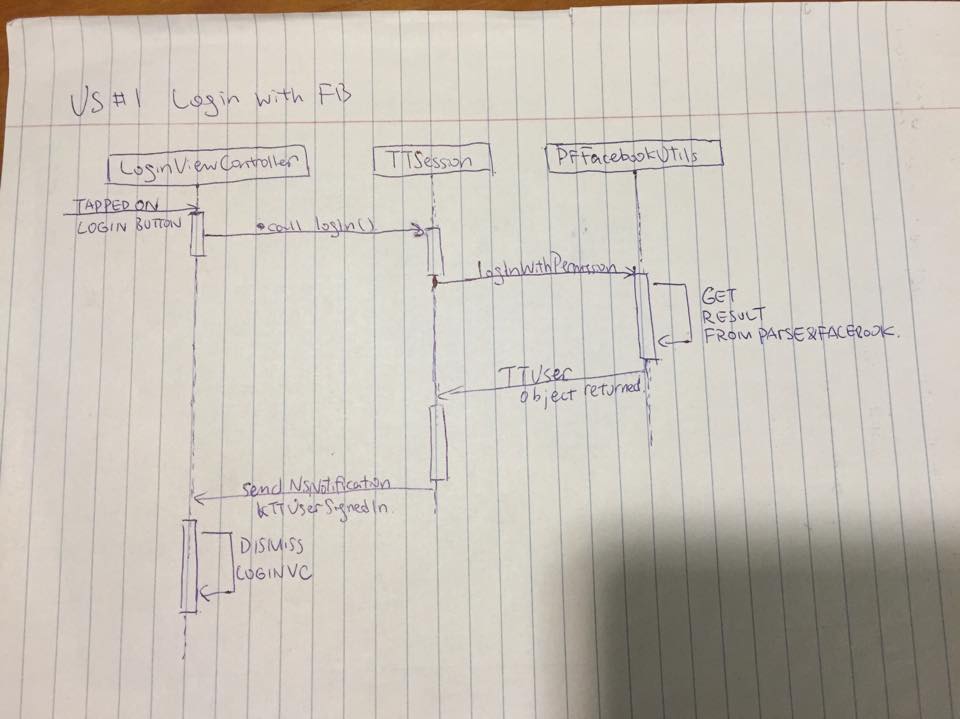 US#1 Login with FB
LoginViewController
TTSession
PFFacebookUtils
TAPPED ON
LOGIN BUTTON
call login()
logInWithPermission
GET
RESULT
FROM PARSE&FACEBOOK.
TTUser
object returned
send NSNotification
kTTUserSignedIn.
DISMISS
LOGINVC